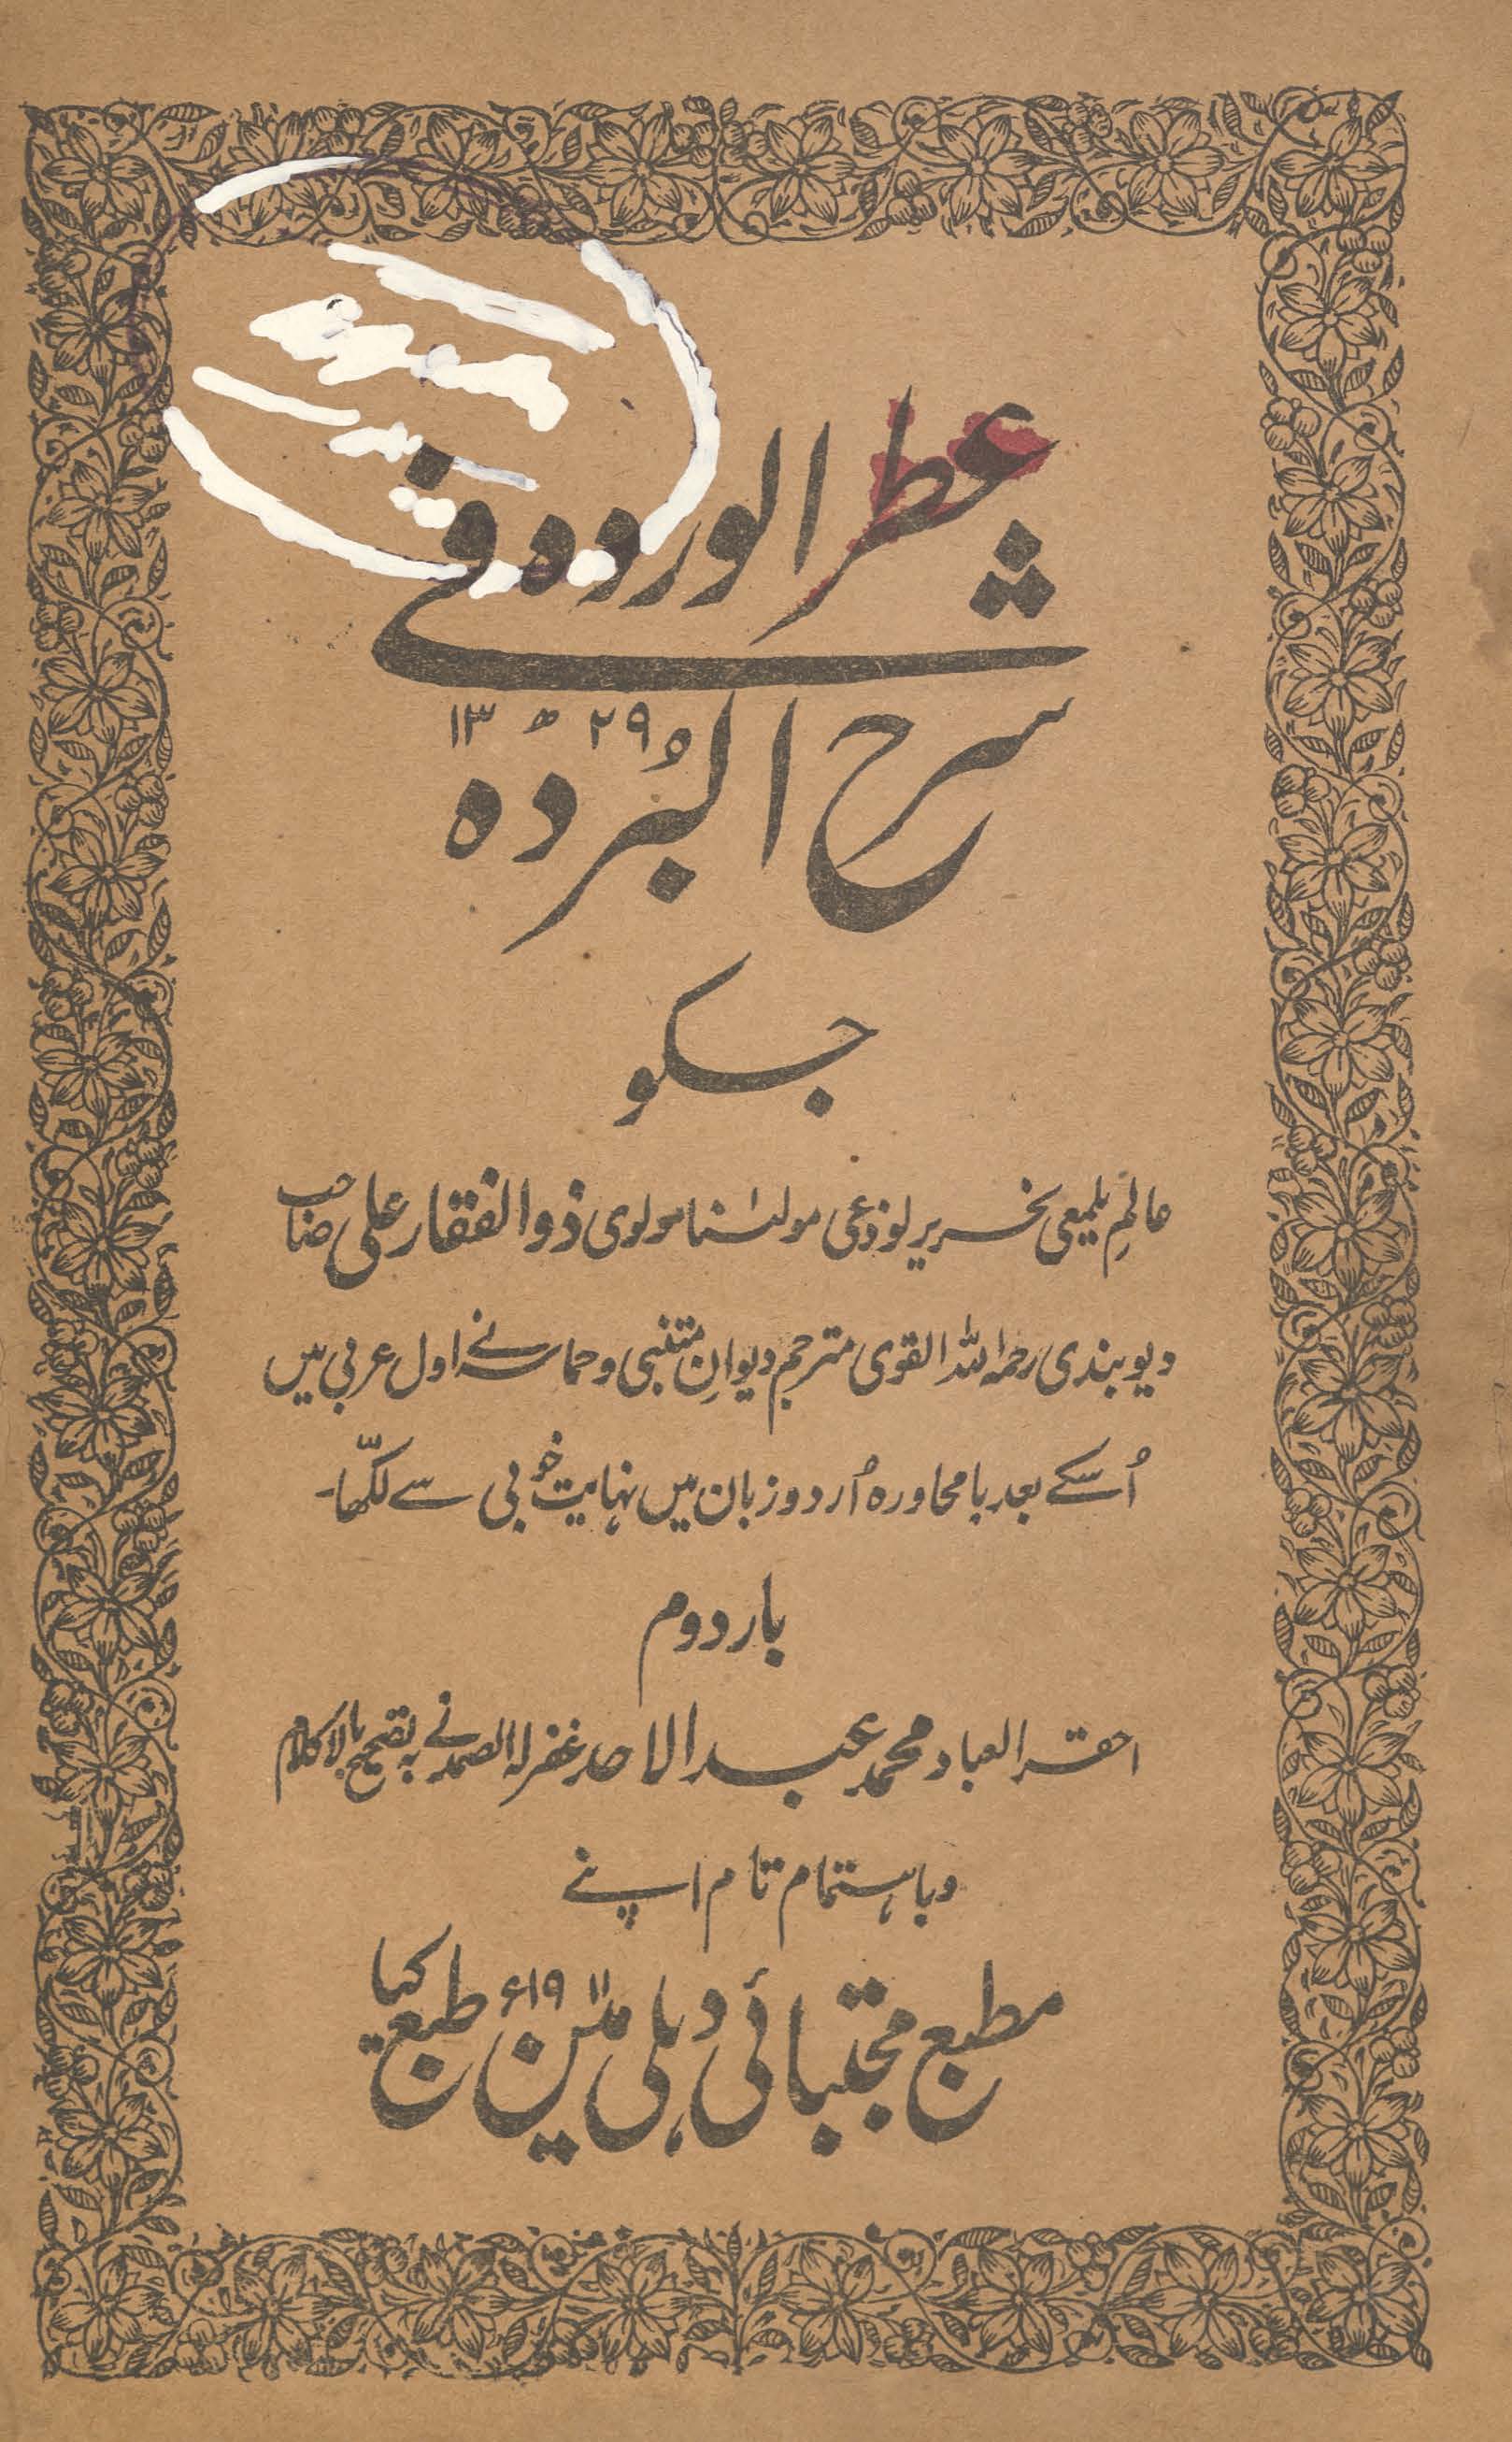 عطر الوردہ فے
شرح البُردہ
۱۳۲۹ھ
جسکو
عالمِ یلمعی نحریر لوذعی مولٰنا مولوی ذوالفقار علی صاحب
دیوبندی رحمہ اللہ القوی مترجم دیوانِ متنبی و حماسہ نے اول عربی میں
اُسکے بعد بامحاورہ اُردو زبان میں نہایت خوبی سے لکھّا۔
بار دوم
احقر العباد محمد عبد الاحد غفر لہ الصمد نے بہ تصحیح بالاکلام
وباہتمام تام اپنے
مطبع مجتبائی دہلی میں ۱۹۱۱ء طبع کیا